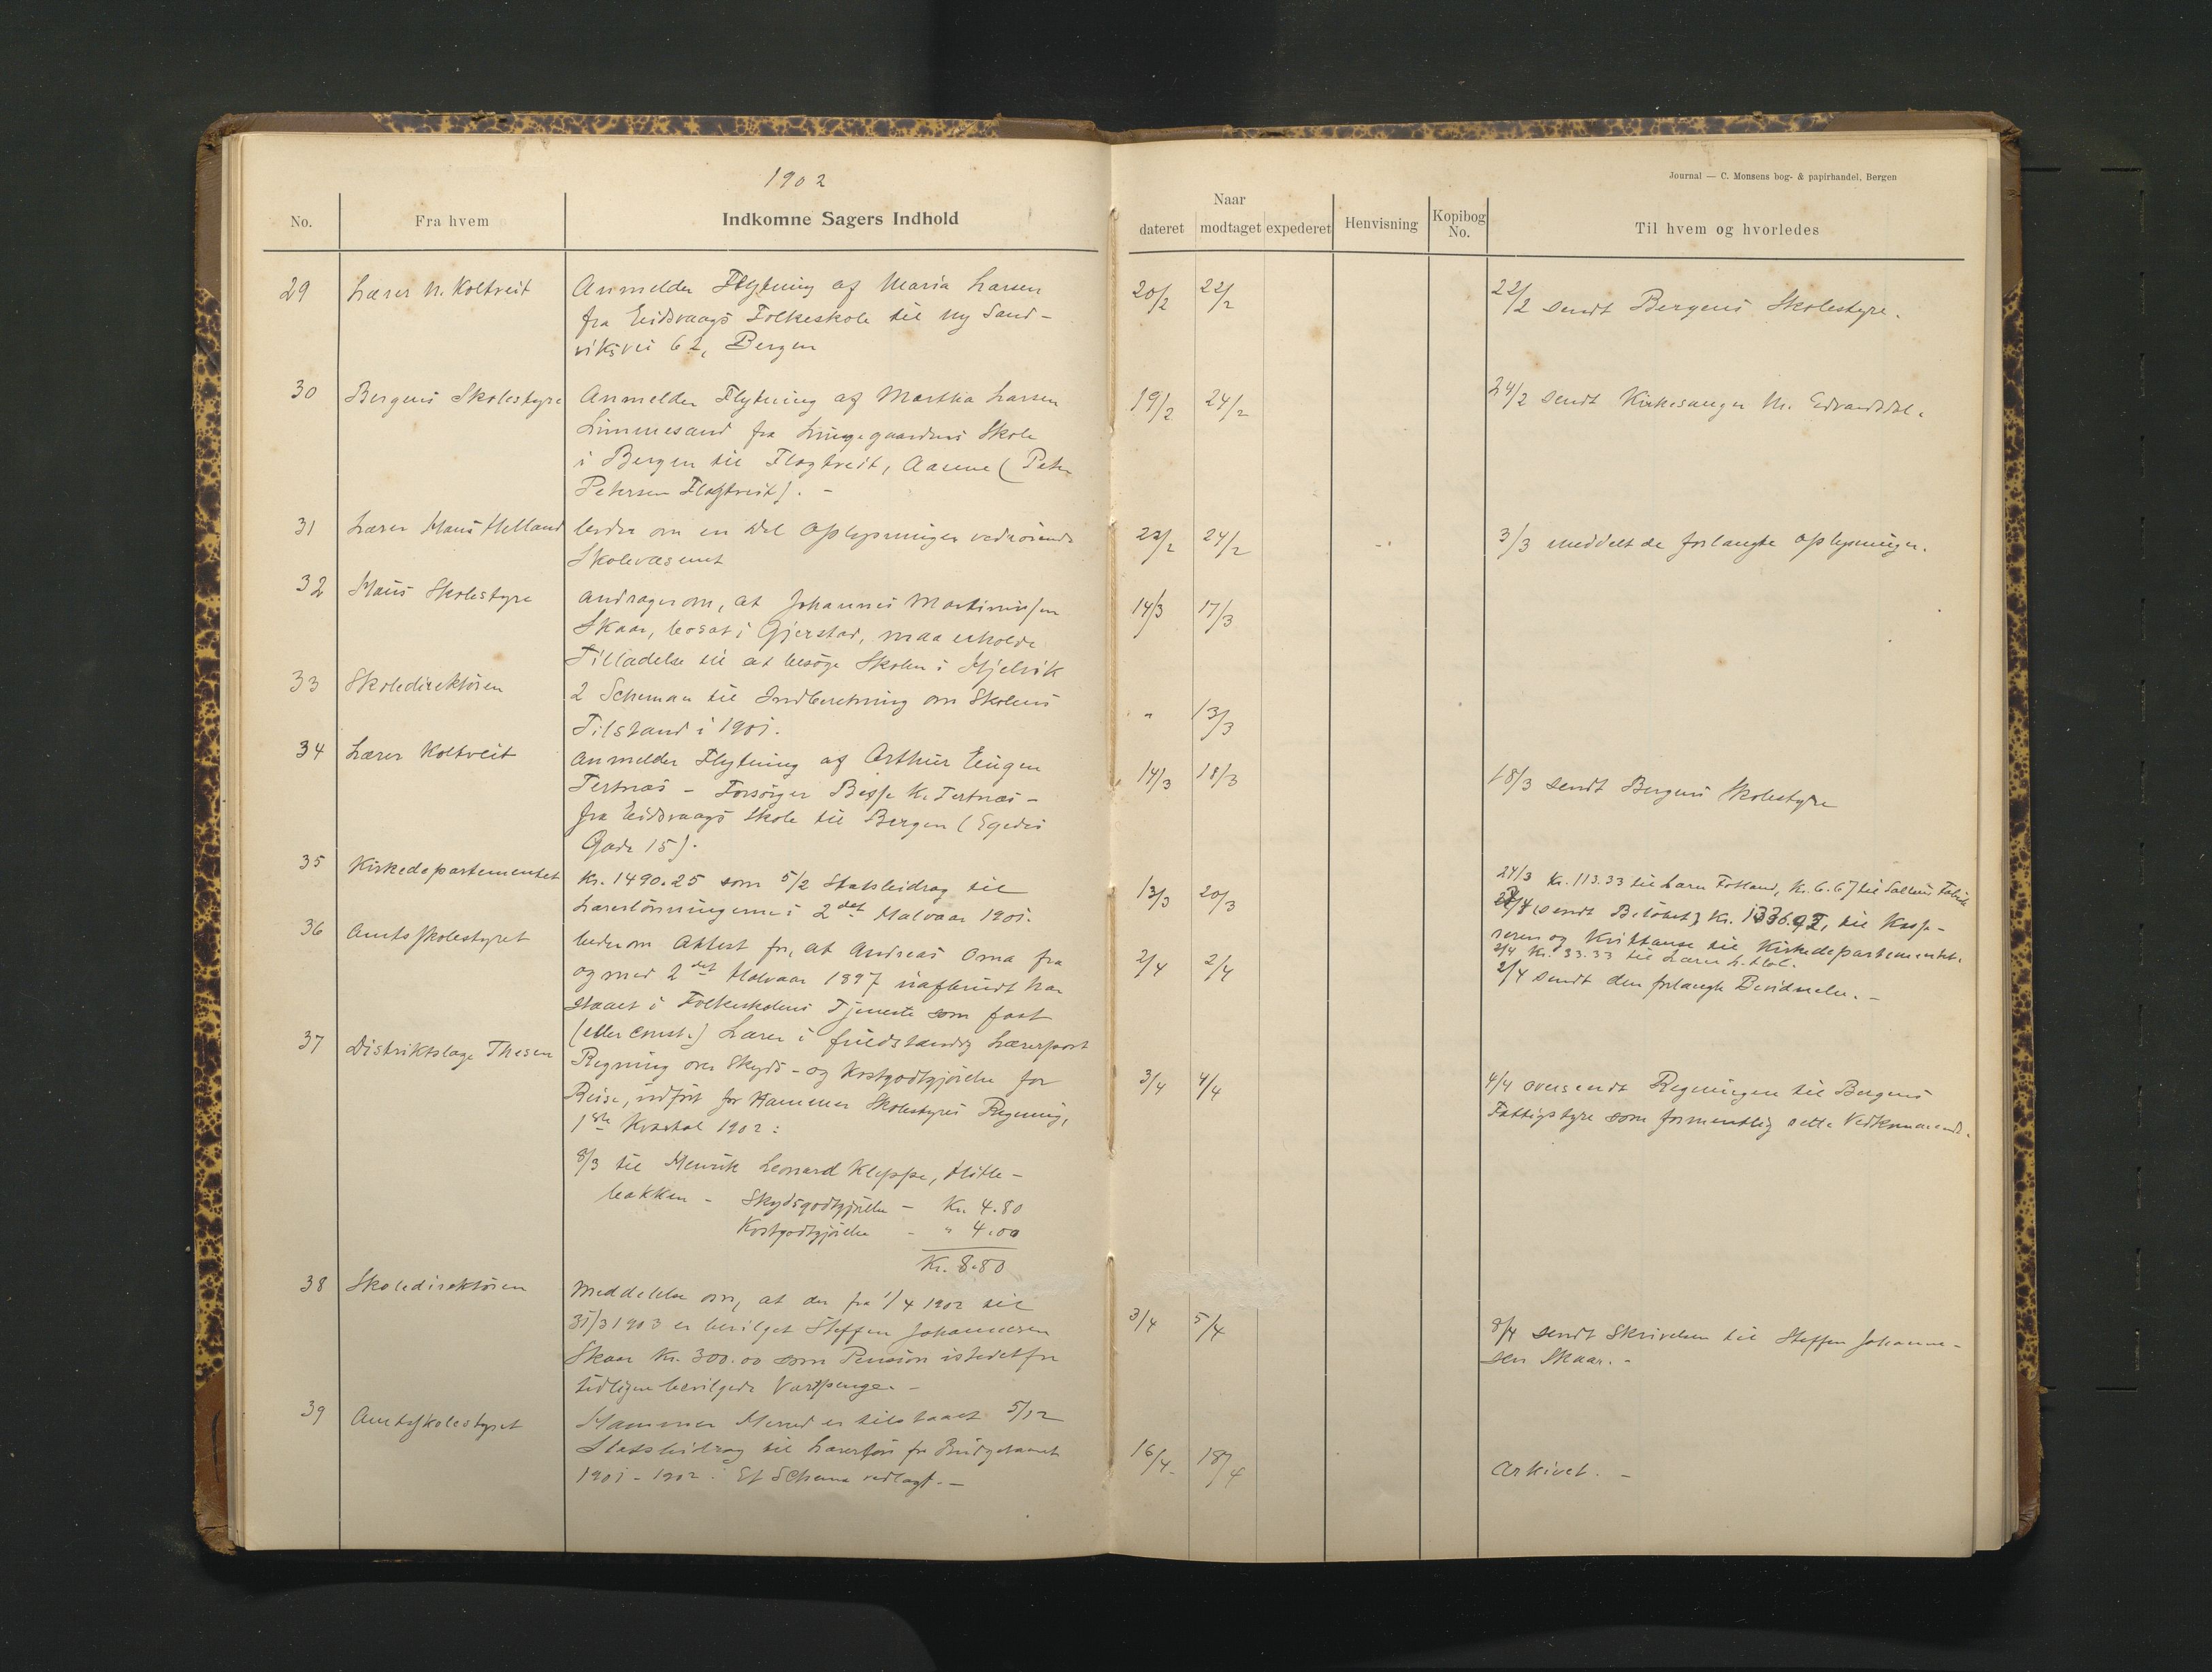 1902
Journal — C. Monsens bog- & papirhandel, Bergen
No.
Fra hvem
Indkomne Sagers Indhold
Naar
dateret
modtaget
expederet
Henvisning
Kopibog
No.
Til hvem og hvorledes
29
Lærer N. Koltveit
Anmelder Flytning af Maria Larsen
fra Eidsvaags Folkeskole til Ny Sand-
viksvei 62, Bergen
20/2
22/2
22/2 sendt Bergens Skolestyre.
30
Bergens Skolestyre
Anmelder Flytning af Martha Larsen
Limmesand fra Lungegaardens Skole
i Bergen til Flagtveit, Aanne (Peter
Petersen Flagtveit). -
19/2
24/2
24/2 sendt Kirkesanger M. Edvardsdal.
31
Lærer Hans Helland
beder om en Del Oplysninger vedrörende
Skolevæsenet
22/2
24/2
3/3 meddelt de forlangte Oplysninger.
32
Haus Skolestyre
andrager om, at Johannes Martinussen
Skaar, bosat i Gjerstad, maa erholde
Tilladelse til at besöge Skolen i Hjelvik
14/3
17/3
33
Skoledirektören
2 Schemaer til Indberetning om Skolens
Tilstand i 1901.
"
13/3
34
Lærer Koltveit
anmelder Flytning af Arthur Eugen
Tertnæs - Forsörger Besse K. Tertnæs -
fra Eidsvaags Skole til Bergen (Egedes
Gade 15).
14/3
18/3
18/3 sendt Bergens Skolestyre
35
Kirkedepartementet
Kr. 1490.25 som 5/2 Statsbidrag til
Lærerlönningerne i 2det Halvaar 1901.
13/3
20/3
24/3 Kr. 113.33 til Lærer Fotland, Kr. 6.67 til
sendt Belöbet, Kr. 1336.92, til Kasse-
reren og Kvittanse til Kirkedepartementet.
2/4 Kr. 33.33 til Lærer
36
Amtsskolestyret
beder om Attest for, at Andreas Oma fra
og med 2det Halvaar 1897 uafbrudt har
staaet i Folkeskolens Tjeneste som fast
(eller const.) Lærer i fuldstændig Lærerpost
2/4
2/4
2/4 sendt den forlangte Bevidnelse. -
37
Distriktslæge Thesen
Regning over Skyds- og Kostgodtgjörelse for
Reise, udfört for Hammer Skolestyres Regning,
1ste Kvartal 1902:
8/3 til Henrik Leonard Kleppe, Hitle-
bakken - Skydsgodtgjörelse - Kr. 4.80
Kostgodtgjörelse - " 4.00
Kr. 8.80
3/4
4/4
4/4 oversendt Regningen til Bergens
Fattigstyre som formentlig rette Vedkommende.
38
Skoledirektören
Meddelelse om, at der fra 1/4 1902 til
31/3 1903 er bevilget Steffen Johannesen
Skaar Kr. 300.00 som Pension istedetfor
tidligere bevilgede Vartpenge. -
3/4
5/4
8/4 sendt Skrivelsen til Steffen Johanne-
sen Skaar. -
39
Amtsskolestyret
Hammer Herred er tilstaaet 5/12
Statsbidrag til Lærerlön for Budgetaaret
1901-1902. Et Schema vedlagt. -
16/4
18/4
Arkivet. -